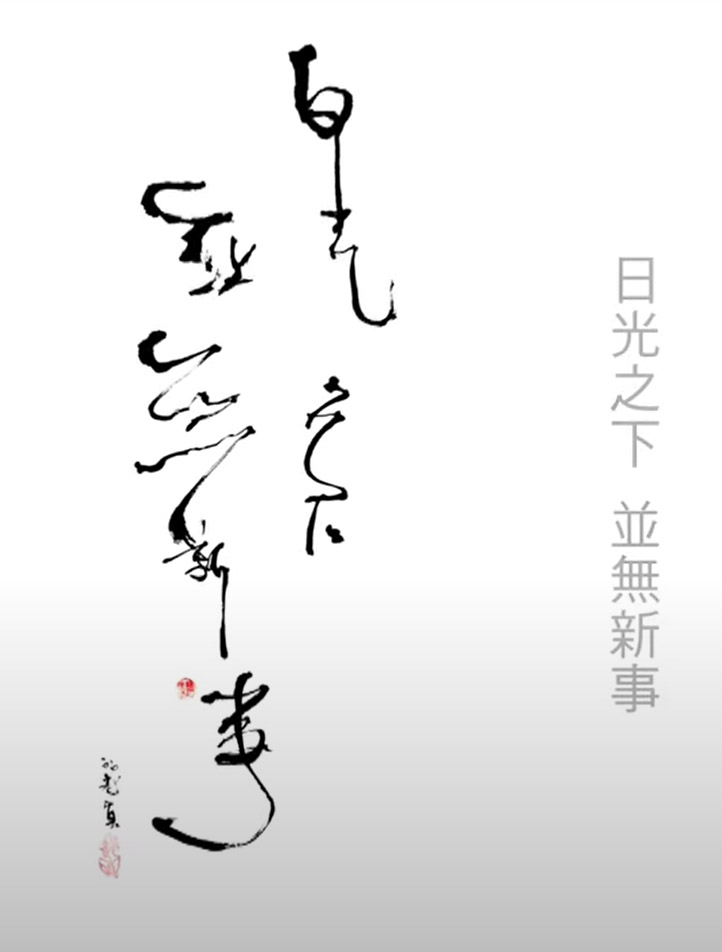 日光之下
並無新事
日光之下 並無新事